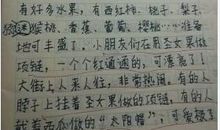 有好多水果，有西红柿、桃子、梨子、
猕猴桃、香蕉、葡萄、樱桃……准备
地可丰盛了，小朋友们在用圣女果做
项链，一个个红通通的，可漂亮了！
大街上人来人往，非常热闹，有的人
脖子上挂着圣女果做的项链，有的人
戴着西瓜做的“太阳帽”，可爱极了